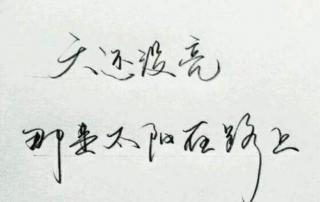 天还没亮
那是太阳在路上